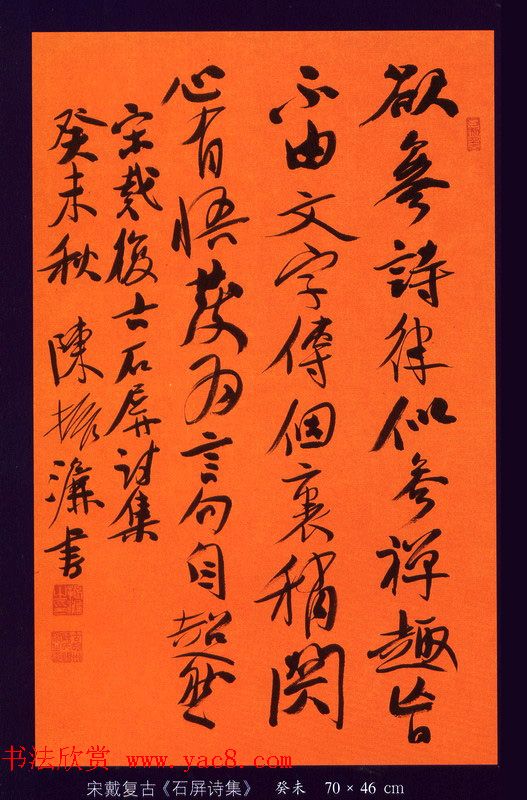 欲參詩律似參禪趣旨
不由文字傳個裏稍関
心有悟發為言句自超然
宋戴復古石屏詩集
癸未秋 陳振濂書
书法欣赏 www.yac8.com
宋戴复古《石屏诗集》 癸未 70 × 46 cm